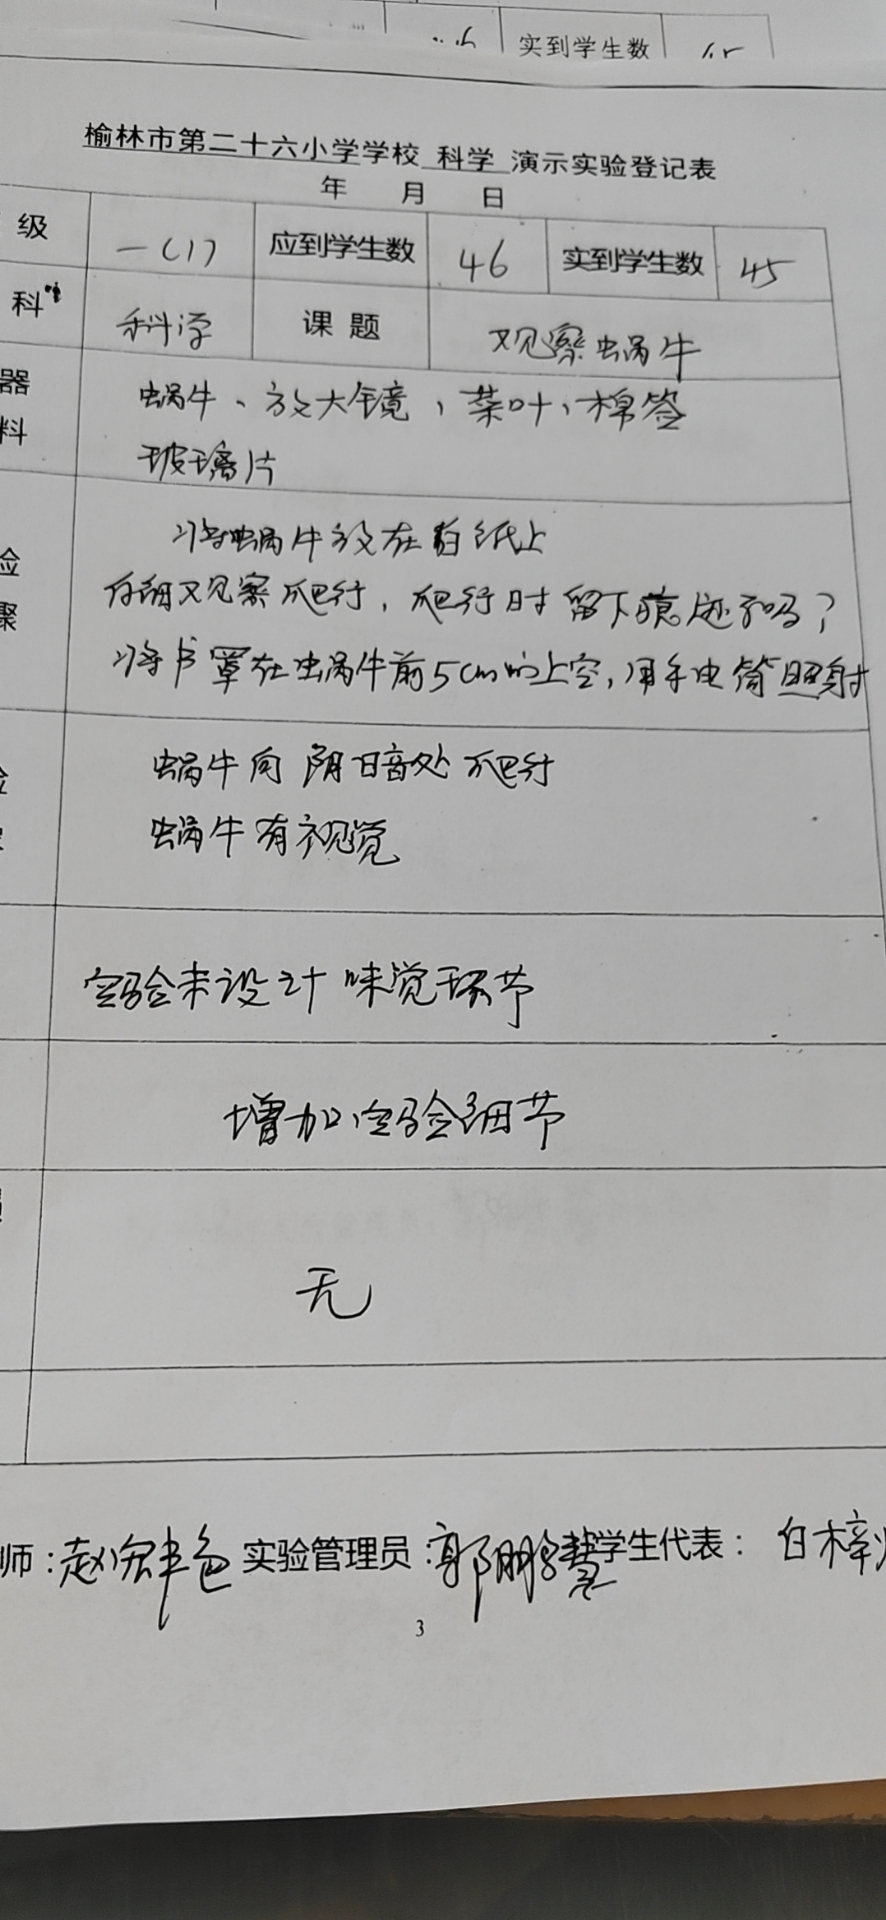 实到学生数
榆林市第二十六小学学校 科学 演示实验登记表
年 月 日
级 一(1) 应到学生数 46 实到学生数 45
科 科学 课题 观察蜗牛
器 蜗牛、放大镜，菜叶、棉签
料 玻璃片
将蜗牛放在白纸上
验 仔细观察爬行，爬行时留下痕迹了吗？
骤 将书罩在蜗牛前5cm的上空，用手电筒照射
蜗牛向阴暗处爬行
蜗牛有视觉
实验未设计味觉环节
增加实验细节
无
师：赵 实验管理员：郭 学生代表：白梓
3